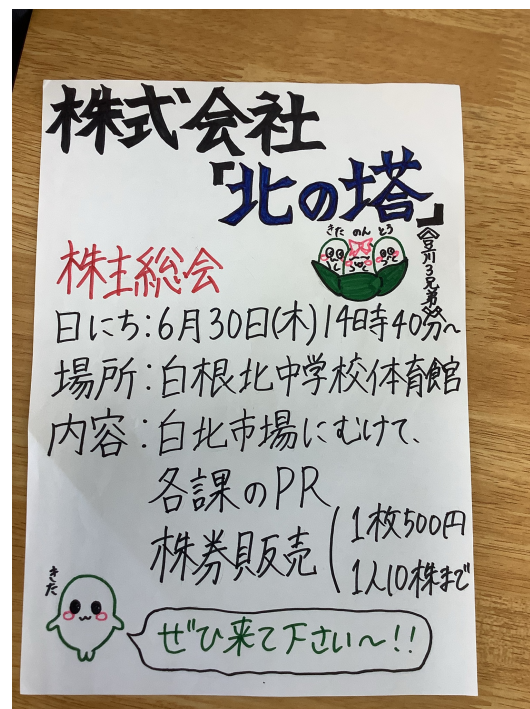 株式会社
「北の塔」
きた のん とう
株主総会
日にち:6月30日(木)14時40分~
場所:白根北中学校体育館
内容:白北市場にむけて、
各課のPR
株券販売
1枚500円
1人10株まで
きた
ぜひ来て下さい~!!